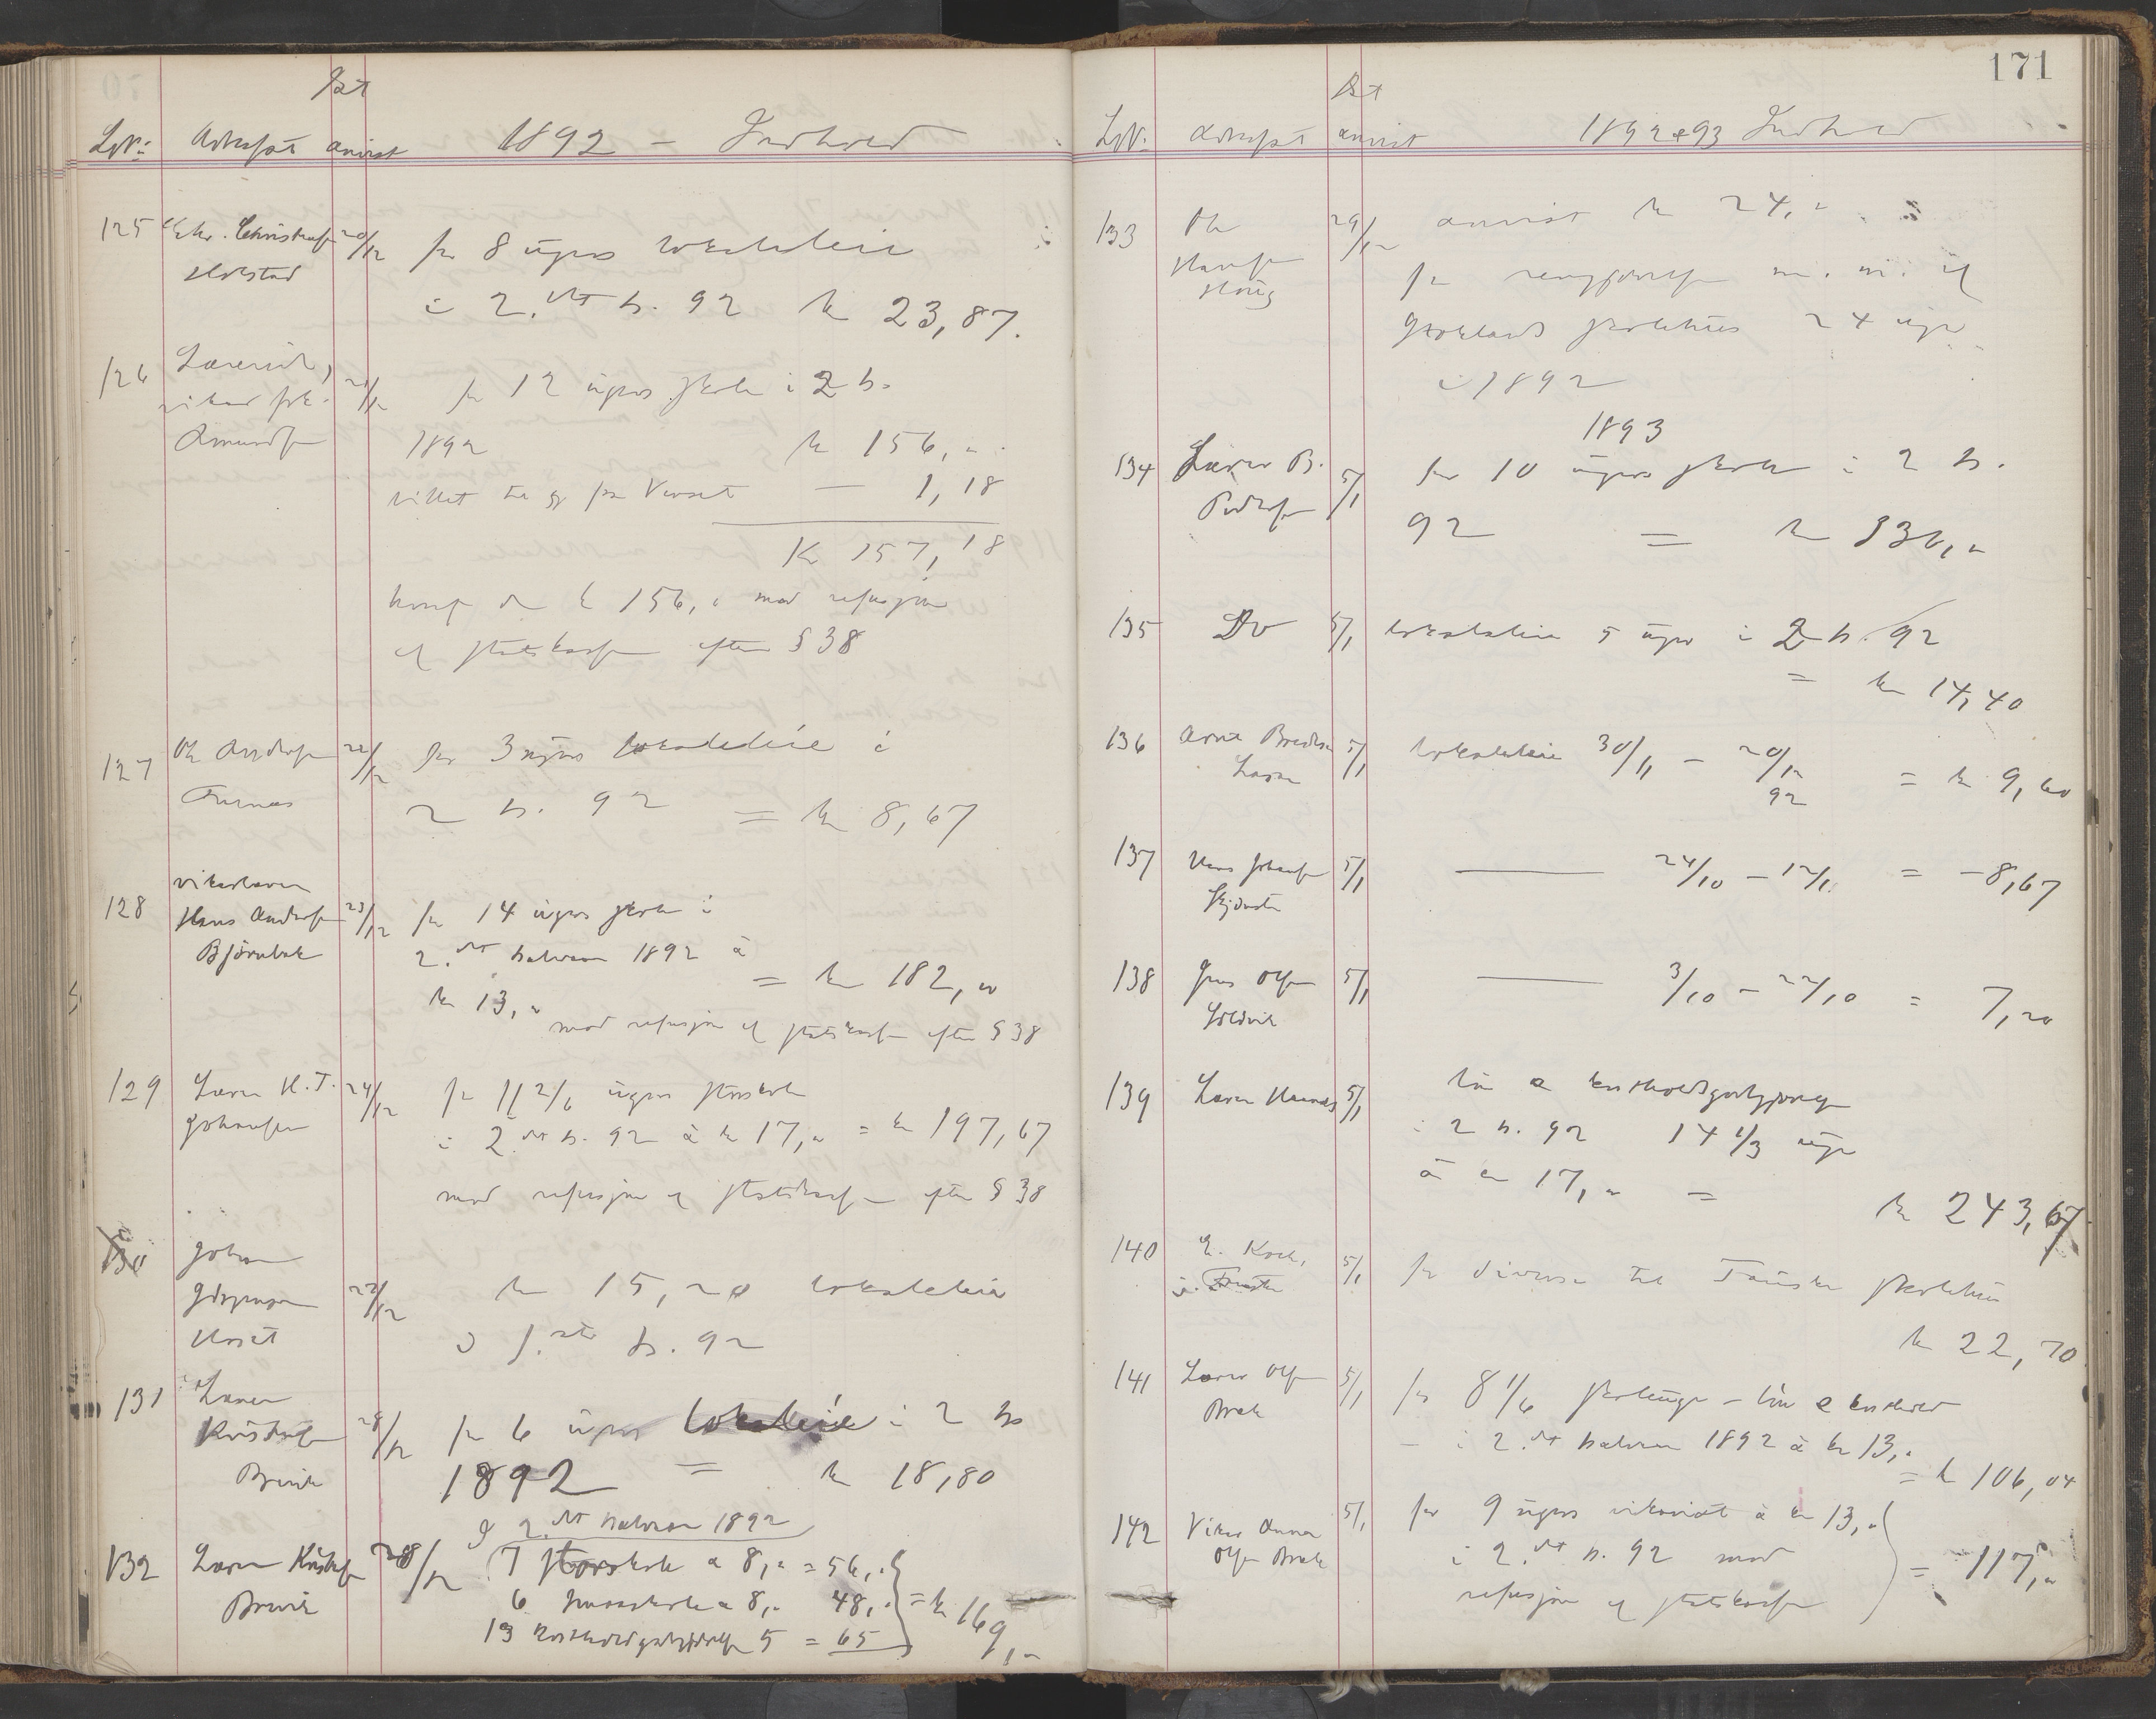 Dat
LNr: Adressat anvist 1892 - Indhold
125 Chr. Christens. 20/12 for 8 ugers lokalleie
Holstad
i 2.det h. 92 kr 23,87.
126 Lærerinde,
vikar frk. 21/12 for 12 ugers skole i 2 h.
Amundsen 1892 kr 156,"
billet til og fra Veset — 1,18
Kr 157,18
hvoraf de kr 156," mod refusjon
af statskassen efter § 38
127 Ole Andersen 22/12 for 3 ugers lokalleie i
Furnes
2 h. 92 = kr 8,67
vikarlærer
128 Hans Andersen 23/12 for 14 ugers skole i
Bjørnbak 2.det halvaar 1892 à
kr 13," = kr 182,"
mod refusjon af statskassen efter § 38
129 Lærer H. J. 24/12 for 11 2/6 ugers storskole
Johansen i 2.det h. 92 à kr 17," = kr 197,67
mod refusjon af statskassen efter § 38
130 Johan
28/12 kr 15,20 lokalleie
i 1.ste h. 92
131 Lærer
Kristensen 28/12 for 6 ugers lokalleie i 2 h
Brevik 1892 = kr 18,80
I 2.det halvaar 1892
132 Lærer Kristensen 28/12 7 storskole a 8," = 56,"
Brevik 6 smaaskole a 8," 48," = kr 169,"
13 kostholdsgodtgjørelse 5 = 65
171
Dat
LNr. Adressat anvist 1892 & 93 Indhold
133 Ole 29/12 anvist kr 24,"
Hansen
Haug for rengjørelse m. m. af
skolehus 24 uger
i 1892
1893
134 Lærer B. 5/1 for 10 ugers skole i 2 h.
Pedersen
92 = kr 330,"
135 Do 5/1 lokalleie 5 uger i 2 h. 92
= kr 14,40
136 Arnt Bredesen 5/1 lokalleie 30/11 - 20/12 = kr 9,60
92
137 Hans Johansen 5/1 —— 24/10 - 12/11 = - 8,67
138 Jens Olsen 5/1 —— 3/10 - 22/10 = 7,20
139 Lærer 5/1 løn & kostholdsgodtgjørelse
i 2 h. 92 14 1/3 uge
à kr 17," =
kr 243,67
140 E. Koch, 5/1 for diverse til Fauske skolehus
i Fauske
kr 22,70
141 Lærer Olsen 5/1 for 8 1/6 skoleuge - løn & kosthold
Brak
- i 2.det halvaar 1892 à kr 13,"
= kr 106,04
142 Vikar Anna 5/1 for 9 ugers vikariat à kr 13,"
Olsen Brak i 2.det h. 92 mod = - 117,"
refusjon af statskassen